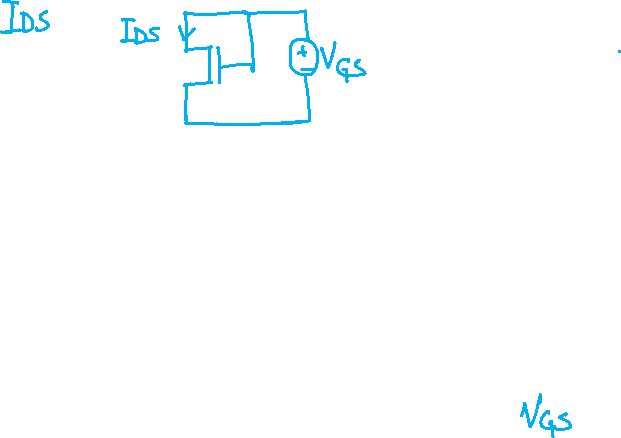 IDS
IDS
+
VGS
−
VGS